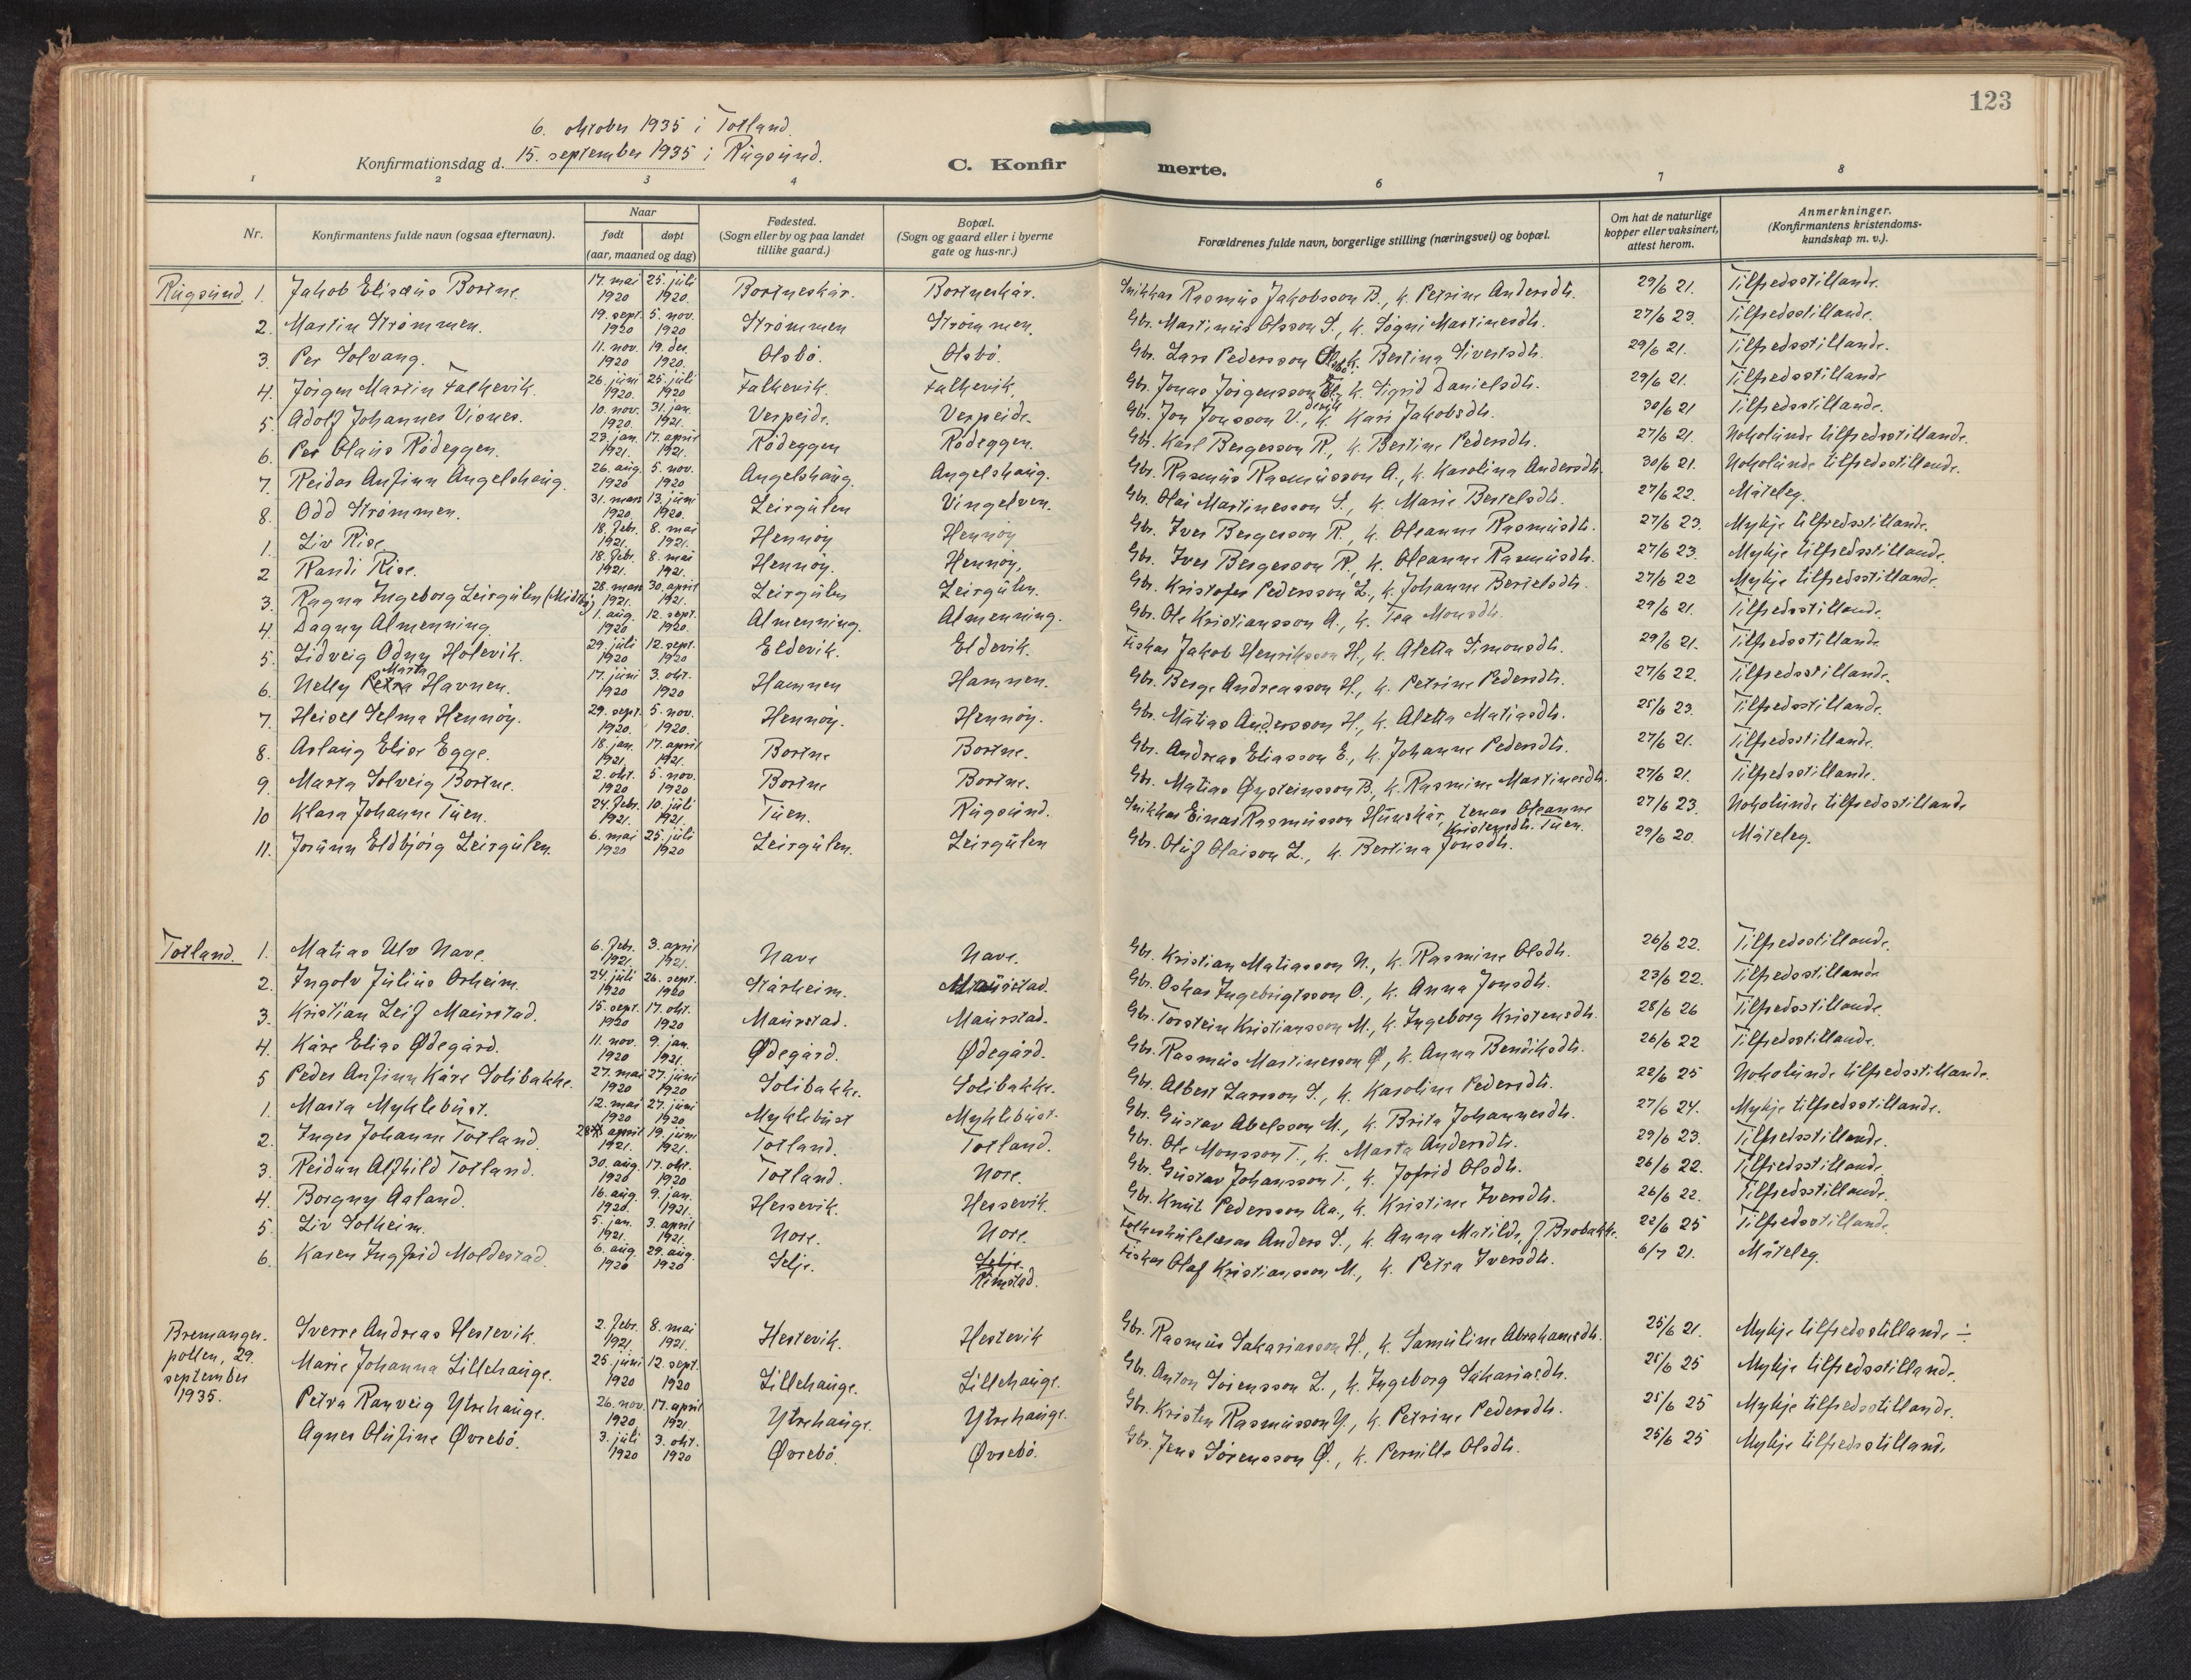 123
6. oktober 1935 i Totland.
Konfirmationsdag d. 15. september 1935 i Rügsünd.
C. Konfirmerte.
1 2 3 4 6 7 8
Nr. Konfirmantens fulde navn (ogsaa efternavn). Naar født døpt (aar, maaned og dag) Fødested. (Sogn eller by og paa landet tillike gaard.) Bopæl. (Sogn og gaard eller i byerne gate og hus-nr.) Forældrenes fulde navn, borgerlige stilling (næringsvei) og bopæl. Om hat de naturlige kopper eller vaksinert, attest herom. Anmerkninger. (Konfirmantens kristendomskundskap m. v.).
Rügsünd 1. Jakob Elisæüs Bortne. 17. mai 1920 25. jüli 1920. Bortneskår. Bortneskår. Snikkar Rasmüs Jakobsson B., k. Petrine Andersdtr. 29/6 21. Tilfredsstillande.
2. Martin Strømmen. 19. sept. 1920 5. nov. 1920 Strømmen Strømmen. Gbr. Martinüs Olsson S., k. Søgni Martinesdtr. 27/6 23. Tilfredsstillande.
3. Per Solvang. 11. nov. 1920 19. des. 1920. Olsbö. Olsbö. Gbr. Lars Pedersson Olsbö. k. Bertina Sivertsdtr. 29/6 21. Tilfredsstillande.
4. Jörgen Martin Falkevik. 26. jüni 1920. 25. jüli 1920 Falkevik. Falkevik, Gbr. Jonas Jörgensson k. Sigrid Danielsdtr. 29/6 21. Tilfredsstillande
5. Adolf Johannes Visnes. 10. nov. 1920. 31. jan. 1921. Verpeide. Verpeide. Gbr. Jon Jonsson V., k. Kari Jakobsdtr. 30/6 21 Tilfredsstillande.
6. Per Olaüs Rödeggen. 23. jan. 1921. 17. april 1921. Rödeggen Rödeggen. Gbr. Karl Bergesson R., k. Bertine Pedersdtr. 27/6 21. Nokolünde tilfredsstillande.
7. Reidar Anfinn Angelshaüg. 26. aüg. 1920 5. nov. 1920 Angelshaüg. Angelshaüg. Gbr. Rasmüs Rasmüsson A., k. Karolina Andersdtr. 30/6 21. Nokolünde tilfredsstillande.
8. Odd Strømmen. 31. mars 1920. 13. jüni 1920. Leirgülen Vingelven. Gbr. Olai Martinesson S., k. Marie Bertelsdtr. 27/6 22. Måteleg.
1. Liv Rise. 18. febr. 1921. 8. mai 1921. Hennöy Hennöy Gbr. Iver Bergesson R., k. Oleanne Rasmüsdtr. 27/6 23. Mykje tilfredsstillande.
2 Randi Rise. 18. febr. 1921. 8. mai 1921. Hennöy. Hennöy, Gbr. Iver Bergesson R., k. Oleanne Rasmüsdtr. 27/6 23. Mykje tilfredsstillande.
3. Ragna Ingeborg Leirgülen 28. mars 1921. 30. april 1921. Leirgülen Leirgülen. Gbr. Kristofer Pedersson L., k. Johanne Bertelsdtr. 27/6 22 Mykje tilfredsstillande.
4. Dagny Almenning. 1. aüg. 1920 12. sept. 1920. Almenning. Almenning. Gbr. Ole Kristiansson A., k. Tea Monsdtr. 29/6 21. Tilfredsstillande.
5. Lidveig Odny Holevik. 29. jüli 1920 12. sept. 1920 Eldevik. Eldevik. Fiskar Jakob Henriksson H., k. Aletta Simonsdtr. 29/6 21. Tilfredsstillande
6. Nelly Petra Marta Havnen. 17. jüni 1920 3. okt. 1920 Hamnen Hamnen. Gbr. Berge Andreasson H., k. Petrine Pedersdtr. 27/6 22. Tilfredsstillande.
7. Heisel Selma Hennöy. 29. sept. 1920. 5. nov. 1920. Hennöy. Hennöy. Gbr. Matias Andersson H., k. Aletta Matiasdtr. 25/6 23. Tilfredsstillande.
8. Aslaüg Elise Egge. 18. jan. 1921. 17. april 1921. Bortne Bortne. Gbr. Andreas Eliasson E., k. Johanne Pedersdtr. 27/6 21. Tilfredsstillande.
9. Marta Solveig Bortne. 2. okt. 1920 5. nov. 1920 Bortne Bortne. Gbr. Matias Øysteinsson B., k. Rasmine Martinesdtr. 27/6 21. Tilfredsstillande.
10 Klara Johanne Tüen. 24. febr. 1921. 10. jüli 1921. Tüen. Rügsünd. Snikkar Einar Rasmüsson Hünskår, tenar Oleanne Kristensdtr. Tüen. 27/6 23. Nokolünde tilfredsstillande
11. Jorünn Eldbjörg Leirgülen. 6. mai 1920 25. jüli 1920 Leirgülen. Leirgülen Gbr. Olüf Olaison L., k. Bertina Jonsdtr. 29/6 20. Måteleg.
Totland. 1. Matias Ulv Nave. 6. febr. 1921. 3. april 1921. Nave Nave. Gbr. Kristian Matiasson N., k. Rasmine Olsdtr. 26/6 22. Tilfredsstillande.
2. Ingolv Jüliüs Orheim. 24. jüli 1920 26. sept. 1920 Stårheim. Maürstad. Gbr. Oskar Ingebrigtsson O., k. Anna Jonsdtr. 23/6 22. Tilfredsstillande
3. Kristian Leif Maürstad. 15. sept. 1920 17. okt. 1920 Maürstad. Maürstad. Gbr. Torstein Kristiansson M., k. Ingeborg Kristensdtr. 28/6 26 Tilfredsstillande.
4. Kåre Elias Ødegård. 11. nov. 1920 9. jan. 1921. Ødegård. Ødegård. Gbr. Rasmüs Martinesson Ø., k. Anna Bendiksdtr. 26/6 22 Tilfredsstillande.
5 Peder Anfinn Kåre Solibakke. 27. mai 1920 27. jüni 1920 Solibakke. Solibakke. Gbr. Albert Larsson S., k. Karoline Pedersdtr. 22/6 25 Nokolünde tilfredsstillande.
1. Marta Myklebüst. 12. mai 1920 27. jüni 1920 Myklebüst Myklebüst. Gbr. Güstav Abelsson M., k. Brita Johannesdtr. 27/6 24. Mykje tilfredsstillande.
2. Inger Johanne Totland. 28. april 1921. 19. jüni 1921. Totland. Totland. Gbr. Ole Monsson T., k. Marta Andersdtr. 29/6 23. Tilfredsstillande.
3. Reidün Alfhild Totland. 30. aüg. 1920 17. okt. 1920 Totland. Nore. Gbr. Güstav Johansson T., k. Jofrid Olsdtr. 26/6 22. Tilfredsstillande.
4. Borgny Aaland. 16. aüg. 1920. 9. jan. 1921. Hessevik. Hessevik. Gbr. Knüt Pedersson Aa., k. Kristine Iversdtr. 26/6 22. Tilfredsstillande.
5. Liv Solheim. 5. jan. 1921. 3. april 1921. Nore. Nore. Folkeskülelærar Anders S., k. Anna Matilde, f. Brobakke. 22/6 25 Tilfredsstillande.
6. Karen Ingfrid Moldestad. 6. aüg. 1920 29. aüg. 1920 Selje. Selje. Rimstad. Fiskar Olaf Kristiansson M., k. Petra Iversdtr. 6/7 21. Måteleg.
Bremangerpollen, 29. september 1935. Sverre Andreas Hestevik. 2. febr. 1921. 8. mai 1921. Hestevik. Hestevik Gbr. Rasmüs Sakariasson H., k. Samüline Abrahamsdtr. 25/6 21. Mykje tilfredsstillande ÷
Marie Johanna Lillehaüge. 25. jüni 1920 12. sept. 1920 Lillehaüge. Lillehaüge. Gbr. Anton Sörensson L., k. Ingeborg Sakariasdtr. 25/6 25 Mykje tilfredsstillande.
Petra Ranveig Ytrehaüge. 26. nov. 1920 17. april 1921. Ytrehaüge. Ytrehaüge. Gbr. Kristen Rasmüsson Y., k. Petrine Pedersdtr. 25/6 25 Mykje tilfredsstillande.
Agnes Olüfine Øvrebö. 3. jüli 1920 3. okt. 1920 Øvrebö. Øvrebö. Gbr. Jens Sörensson Ø., k. Pernille Olsdtr. 25/6 25 Mykje tilfredsstillande